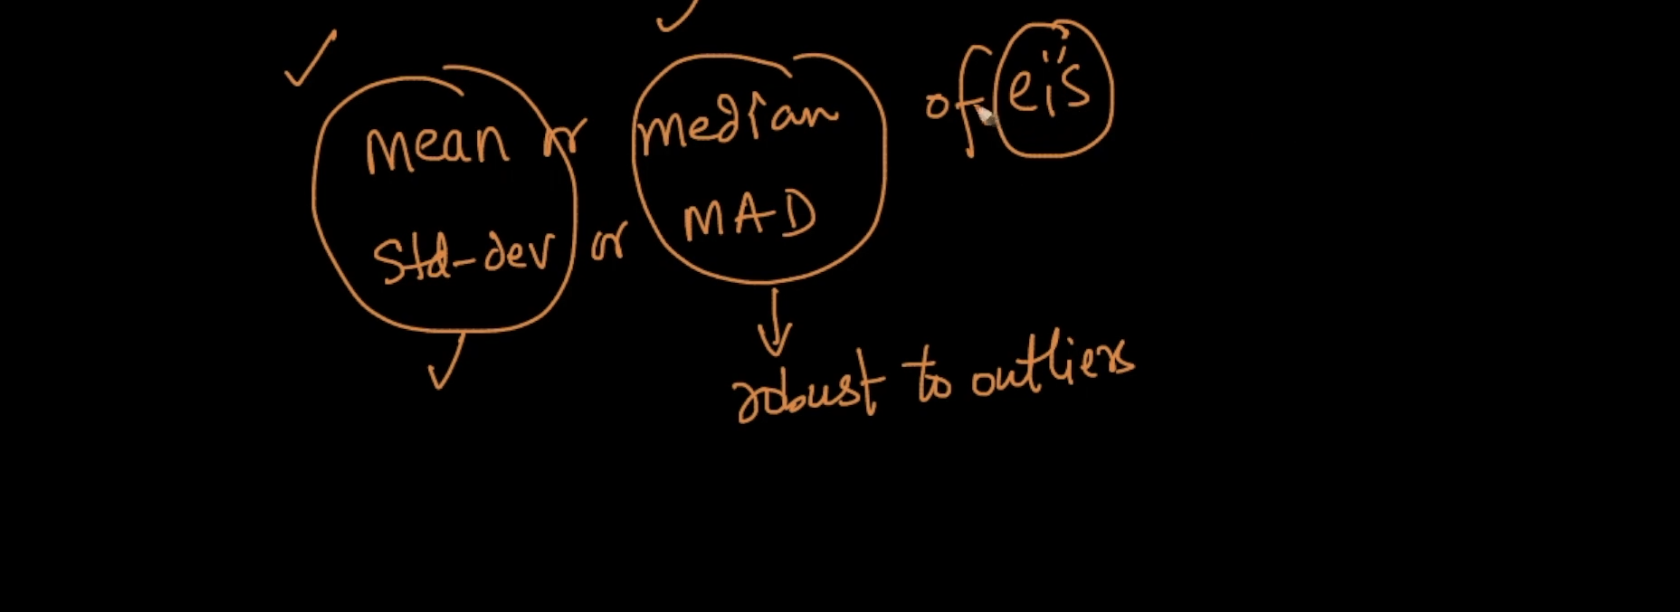 mean or median of ei's
std-dev or MAD
robust to outliers